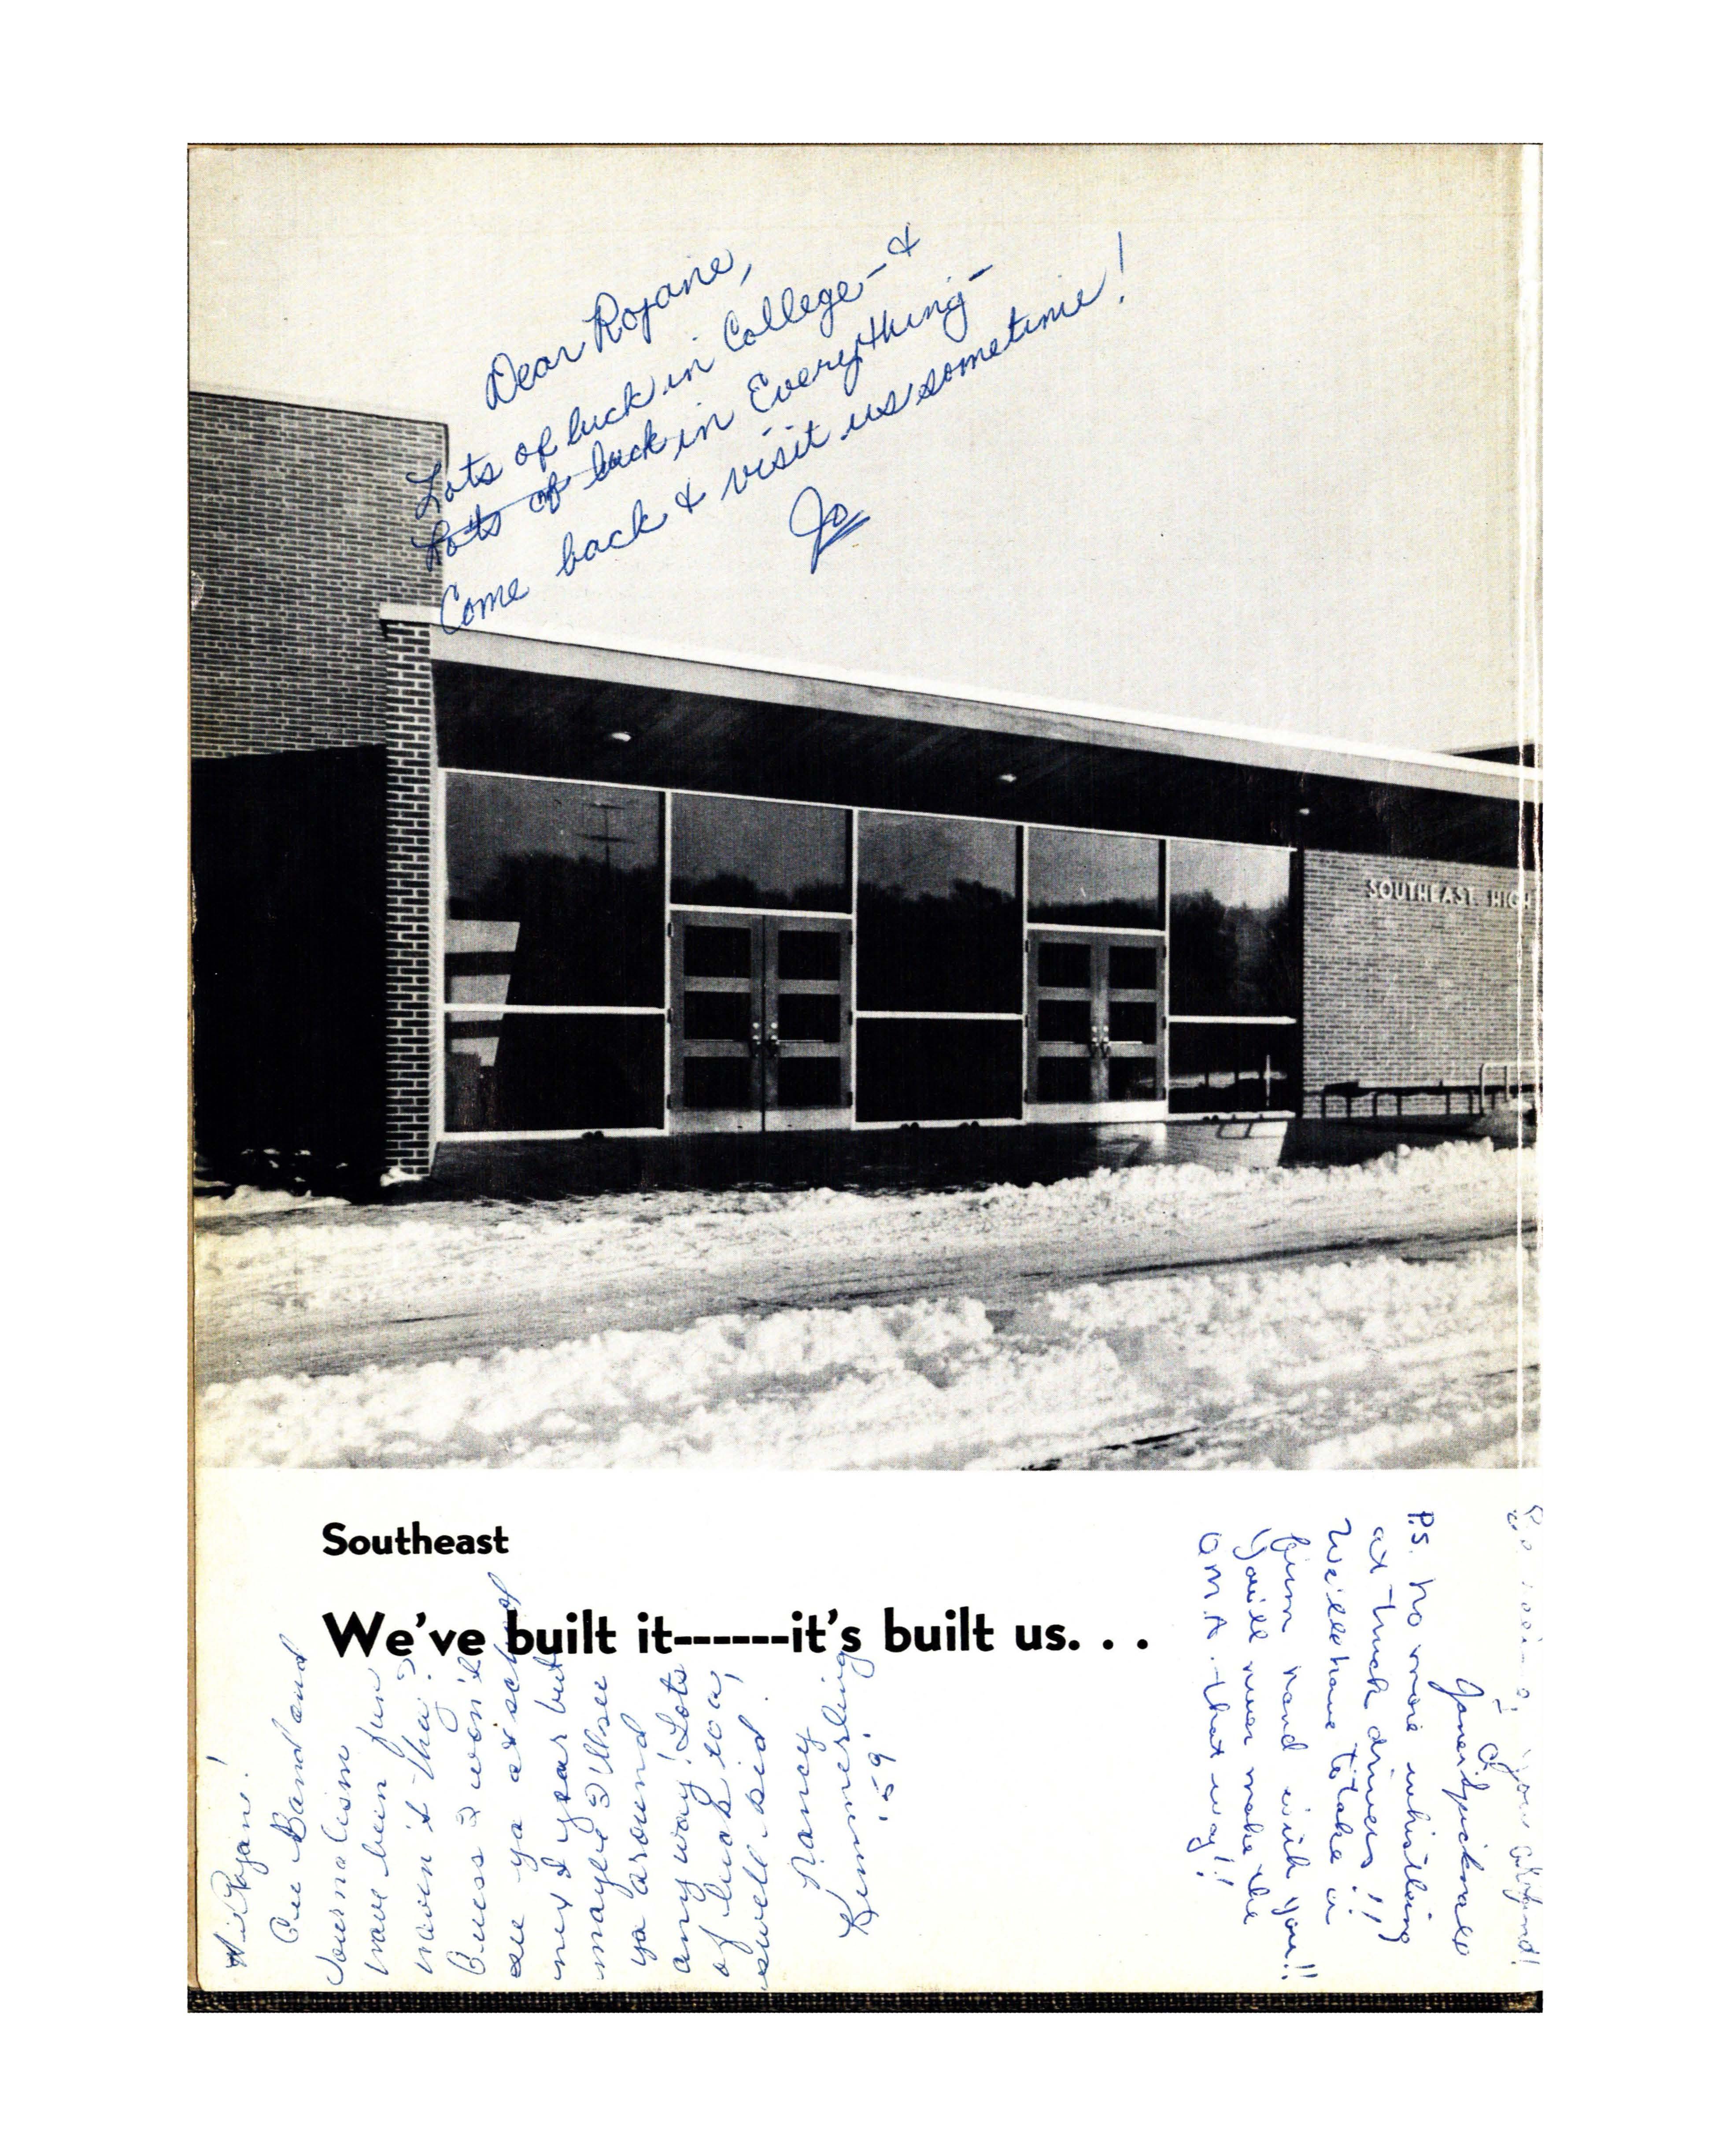 Dear Rojane,
Lots of luck in College - &
Lots of luck in Everything -
Come back & visit us sometime!
Jo
SOUTHEAST HIGH
Southeast
We've built it------it's built us. . .
Hi Rojane!
Band and
Journalism
have been fun
haven't they?
Guess I won't
see ya at school
next year but
maybe I'll see
ya around
anyway! Lots
of luck to a
swell kid!
Nancy
Kimmerling
'59'
your
P.S. No more whistling
at truck drivers!!
We'll have to take a
firm hand with you!!
You'll never make the
that way!!